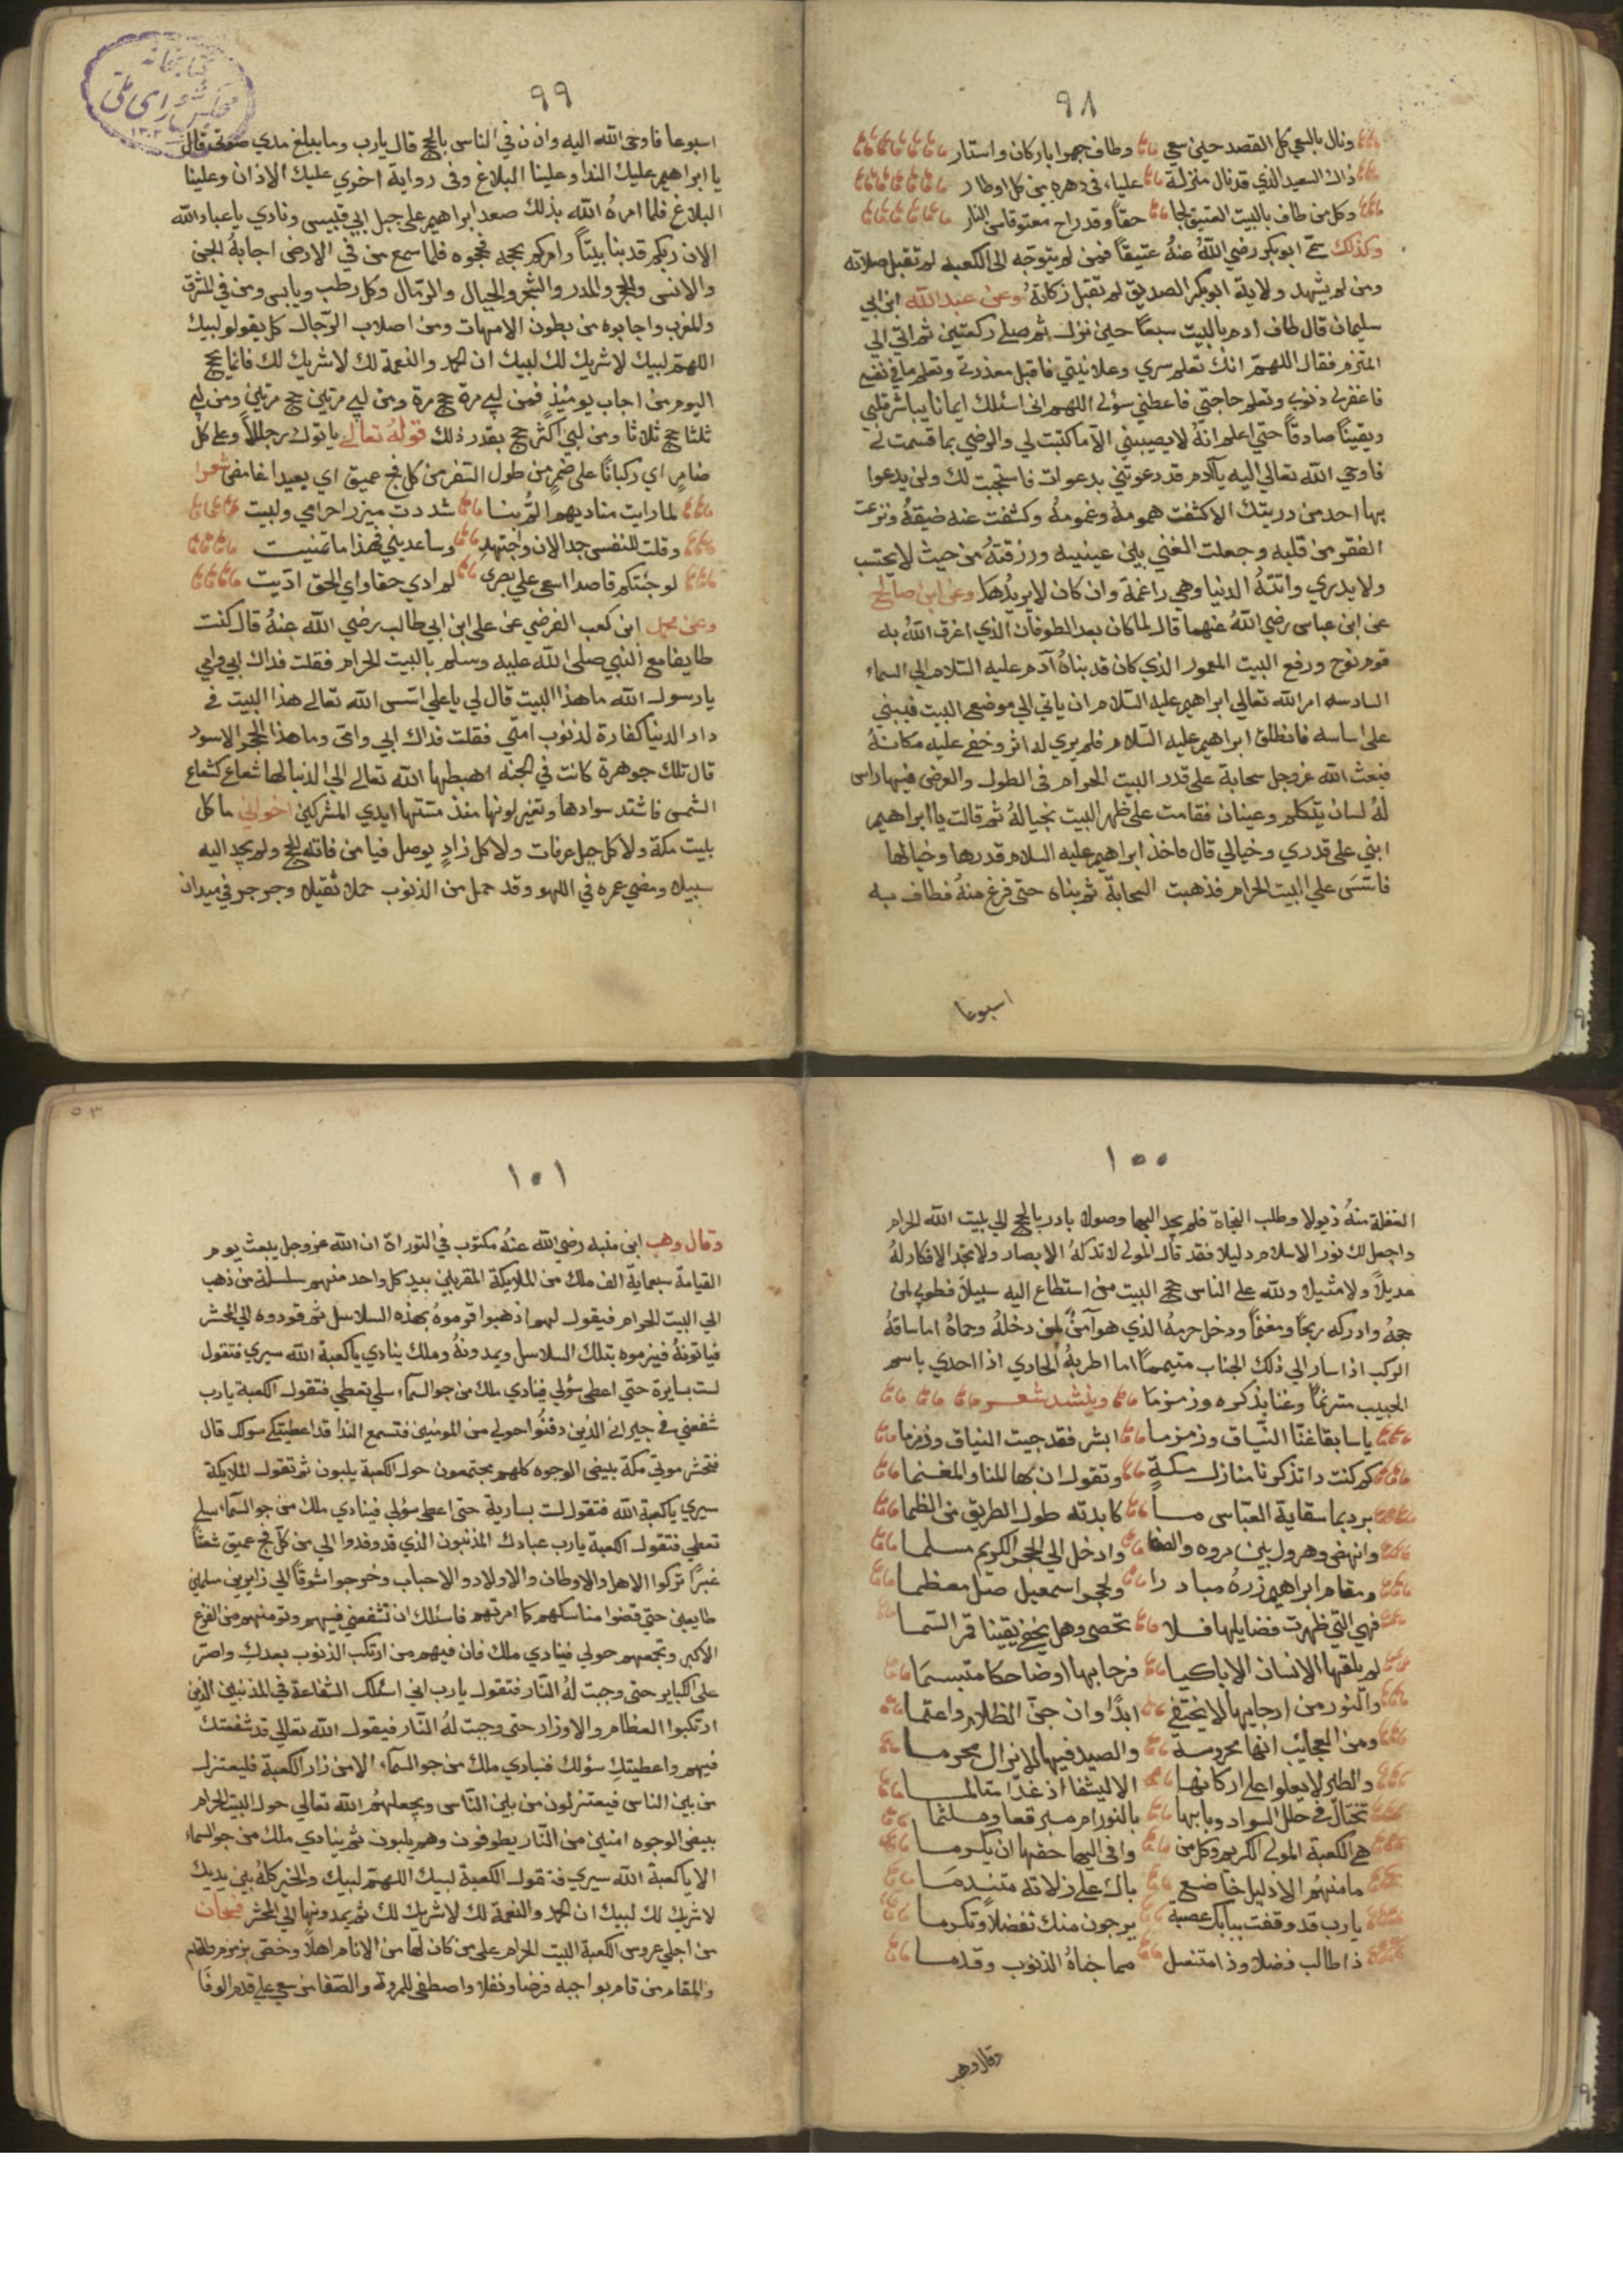 ٩٨
ونال بالسعي كل القصد حين سعي وطاف جهرا باركان واستار
ذاك السعيد الذي قد نال منزلة علياء في دهره من كل اوطار
وكل من طاف بالبيت العتيق لجا حقا وقد راح معتوقا من النار
وكذلك سمي ابو بكر رضي الله عنهُ عتيقاً فمن لم يتوجه الى الكعبه لم تقبل صلاته
ومن لم يشهد ولاية ابو بكر الصديق لم تقبل زكاتهُ وعن عبد الله ابن ابي
سليمان قال طاف ادم بالبيت سبعاً حين نزل ثم صلي ركعتين ثم اتي الي
الملتزم فقال اللهم انك تعلم سري وعلانيتي فاقبل معذرتي وتعلم ما في نفسي
فاغفر لي ذنوبي وتعلم حاجتي فاعطني سؤلي اللهم اني اسئلك ايمانا يباشر قلبي
ويقيناً صادقاً حتي اعلم انهُ لا يصيبني الا ما كتبت لي والرضي بما قسمت لي
فاوحي الله تعالي اليه يا آدم قد دعوتني بدعوات فاستجبت لك ولن يدعوا
بها احد من دريتك الا كشفت همومهُ وغمومهُ وكشفت عنه ضيقهُ ونزعت
الفقر من قلبه وجعلت الغني بين عينيه ورزقتهُ من حيث لا يحتسب
ولا يدري واتتهُ الدنيا وهي راغمة وان كان لا يريدُها وعن ابن صالح
عن ابن عباس رضي اللهُ عنهما قال لما كان بعد الطوفان الذي اغرق اللهُ به
قوم نوح ورفع البيت المعمور الذي كان قد بناهُ آدم عليه السلام الي السماء
السادسه امر الله تعالي ابراهيم عليه السلام ان ياتي الي موضع البيت فيبني
علي اساسه فانطلق ابراهيم عليه السلام فلم يري له اثر وخفي عليه مكانهُ
فبعث الله عز وجل سحابة علي قدر البيت الحرام في الطول والعرض فيها راس
لهُ لسان يتكلم وعينان فقامت علي ظهر البيت بحيالهُ ثم قالت يا ابراهيم
ابني علي قدري وخيالي قال فاخذ ابراهيم عليه السلام قدرها وخيالها
فاسَّسَ علي البيت الحرام فذهبت السحابة ثم بناه حتى فرغ منهُ فطاف به
اسبوعا
٩٩
كتابخانه
مجلس شوراى ملى
اسبوعا فاوحي الله اليه واذن في الناس بالحج قال يا رب وما يبلغ مدي صوتي قال
يا ابراهيم عليك الندا وعلينا البلاغ وفي رواية اخري عليك الاذان وعلينا
البلاغ فلما امرهُ الله بذلك صعد ابراهيم علي جبل ابي قبيس ونادي يا عباد الله
الان ربكم قد بنا بيتاً وامركم بحجه فحجوه فلما سمع من في الارض اجابهُ الجن
والانس والحجر والمدر والشجر والجبال والرمال وكل رطب ويابس ومن في المشرق
والمغرب واجابوه من بطون الامهات ومن اصلاب الرجال كل يقولو لبيك
اللهم لبيك لا شريك لك لبيك ان الحمد والنعمة لك لا شريك لك فانما يحج
اليوم من اجاب يوميئذٍ فمن لبي مرة حج مرة ومن لبي مرتين حج مرتين ومن لبي
ثلثا حج ثلاثا ومن لبي اكثر حج بقدر ذلك قولهُ تعالي ياتوك رجالاً وعلي كل
ضامرٍ اي ركباناً علي ضمر من طول السفر من كل فج عميق اي بعيدا غامض شعرا
لما رايت مناديهم الم بنا شددت ميزر احرامي ولبيت
وقلت للنفس جد الان واجتهدِ وساعديني فهذا ما تمنيت
لو جئتكم قاصدا اسعي علي بصري لم ادي حقا واي الحق اديت
وعن محمد ابن كعب القرضي عن علي ابن ابي طالب رضي الله عنهُ قال كنت
طايفا مع النبي صلى الله عليه وسلم بالبيت الحرام فقلت فداك ابي وامي
يا رسول الله ما هذا البيت قال لي يا علي اسس الله تعالي هذا البيت في
دار الدنيا كفارة لذنوب امتي فقلت فداك ابي وامي وما هذا الحجر الاسود
قال تلك جوهرة كانت في الجنه اهبطها الله تعالي الي الدنيا لها شعاع كشعاع
الشمس فاشتد سوادها وتغير لونها منذ مستها ايدي المشركين اخواني ما كل
بيت مكة ولا كل جبل عرفات ولا كل زادٍ يوصل فيا من فاته الحج ولم يجد اليه
سبيلا ومضي عمره في اللهو وقد حمل من الذنوب حملا ثقيلا وجرجر في ميدان
١٠٠
الغفلة منهُ ذيولا وطلب النجاة فلم يجد اليها وصولا بادر بالحج الي بيت الله الحرام
واجعل لك نور الاسلام دليلا فقد قال المولي لا تدركهُ الابصار ولا تجد الافكار لهُ
عديلاً ولا مثيلا ولله علي الناس حج البيت من استطاع اليه سبيلاً فطوبي لمن
حجهُ وادركه ربحاً ومغنماً ودخل حرمهُ الذي هو آمنٌ لمن دخلهُ وحماهُ اما ساقهُ
الركب اذا سار الي ذلك الجناب متيمماً اما اطربهُ الحادي اذا احدي باسم
الحبيب مترنماً وغنا بذكره وزمزما وينشد شعر
يا سابقا غنا النياق وزمزما ابشر فقد جيت النياق وزمزما
كم كنت داتذكرنا منازل مكةٍ وتقول ان بها المنا والمغنما
برد بما سقاية العباس ما كابدته طول الطريق من الظما
وانهض وهرول بين مروه والصفا وادخل الي الحجر الكريم مسلما
ومقام ابراهيم زرهُ مبادرا ولحجر اسمعيل صل معظما
فهي التي ظهرت فضايلها فلا تحصي وهل يخفي يقينا قمر السما
لم يلقها الانسان الا باكيا فرحا بها او ضاحكا متبسمَا
والنور من ارجايها لا يختفي ابدًا وان جنّ الظلام واعتما
ومن العجائب انها محروسة والصيد فيها لايزال محرما
والطير لا يعلوا علي اركانها الا ليشفا اذ غدا متالما
تختال في حلل السواد وبابها بالنور ام مبرقعا وملثما
هي الكعبة المولي الكريم وكل من وافي اليها حقها ان يكرما
ما منهُم الا ذليل خاضع باك علي زلاته متندمَا
يا رب قد وقفت ببابك عصبة يرجون منك تفضلاً وتكرما
ذا طالب فضلا وذا متنصل مما جناهُ الذنوب وقدما
وقال وهب
١٠١
وقال وهب ابن منبه رضي الله عنهُ مكتوب في التوراة ان الله عز وجل يبعث يوم
القيامة سبعماية الف ملك من الملايكة المقربين بيد كل واحد منهم سلسلة من ذهب
الي البيت الحرام فيقول لهم اذهبوا فزموهُ بهذه السلاسل ثم قودوه الي المحشر
فياتونهُ فيزموه بتلك السلاسل ويمدونهُ وملك ينادي يا كعبة الله سيري فتقول
لست بسايرة حتي اعطي سؤلي فينادي ملك من جو السماء سلي تعطي فتقول الكعبة يا رب
شفعني في جيراني الذين دفنُوا حولي من المومنين فتسمع الندا قد اعطيتكي سولك قال
فتحشر موتي مكة بيض الوجوه كلهم مجتمعون حول الكعبة يلبون ثم تقول الملايكة
سيري يا كعبة الله فتقول لست بسارية حتى اعطي سؤلي فينادي ملك من جو السماء سلي
تعطي فتقول الكعبة يا رب عبادك المذنبون الذي قد وفدوا الي من كل فج عميق شعثاً
غبرًا تركوا الاهل والاوطان والاولاد والاحباب وخرجوا شوقاً الي زايرين مسلمين
طايعين حتي قضوا مناسكهم كما امرتهم فاسئلك ان تشفعني فيهم وتومنهم من الفزع
الاكبر وتجمعهم حولي فينادي ملك فان فيهم من ارتكب الذنوب بعدكِ واصر
علي الكباير حتي وجبت لهُ النار فتقول يا رب اني اسئلك الشفاعة في المذنبين الذين
ارتكبوا العظام والاوزار حتي وجبت لهُ النار فيقول الله تعالي قد شفعتك
فيهم واعطيتكِ سؤلك فينادي ملك من جو السماء الا من زار الكعبة فليعتزل
من بين الناس فيعتزلون من بين الناس ويجعلهمُ الله تعالي حول البيت الحرام
بيض الوجوه امنين من النار يطوفون وهم يلبون ثم ينادي ملك من جو السماء
الا يا كعبة الله سيري فتقول الكعبة لبيك اللهم لبيك والخير كلهُ بين يديك
لا شريك لك لبيك ان الحمد والنعمة لك لا شريك لك ثم يمدونها الي المحشر فسبحان
من اجلي عروس الكعبة البيت الحرام علي من كان لها من الانام اهلاً وخص بزمزم
والمقام من قام بواجبه فرضا ونفلا واصطفي للمروة والصفا من سعي علي قدم الوفَا